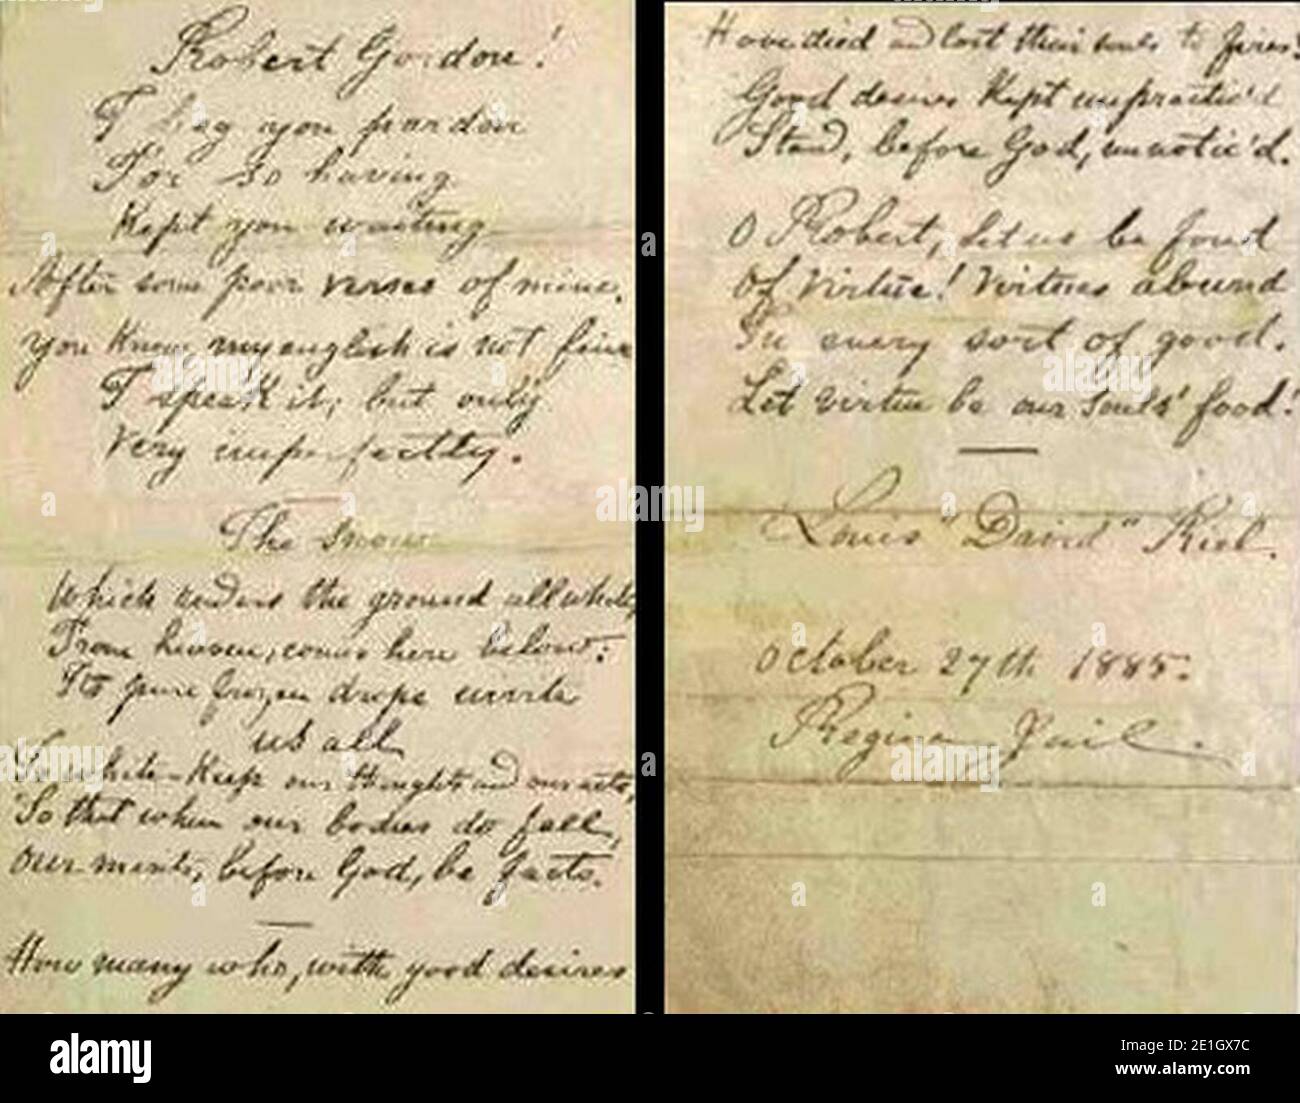 Robert Gordon!
I beg you pardon
For so having
Kept you waiting
After some poor verses of mine.
You Know, my english is not fine
I speak it; but only
Very imperfectly.
The snow
Which renders the ground all white,
From heaven, comes here below:
Its pure frozen drops invite
us all
To white-Keep our thoughts and our acts,
So that when our bodies do fall,
Our merits, before God, be facts.
How many who, with good desires
Have died and lost their souls to fires?
Good desires Kept unpractic'd
Stand, before God, unnotic'd.
O Robert, Let us be fond
Of virtue! Virtues abound
In every sort of good.
Let virtue be our souls' food!
Louis "David" Riel.
October 27th 1885.
Regina Jail.
alamy
a
alamy
Image ID: 2E1GX7C
www.alamy.com